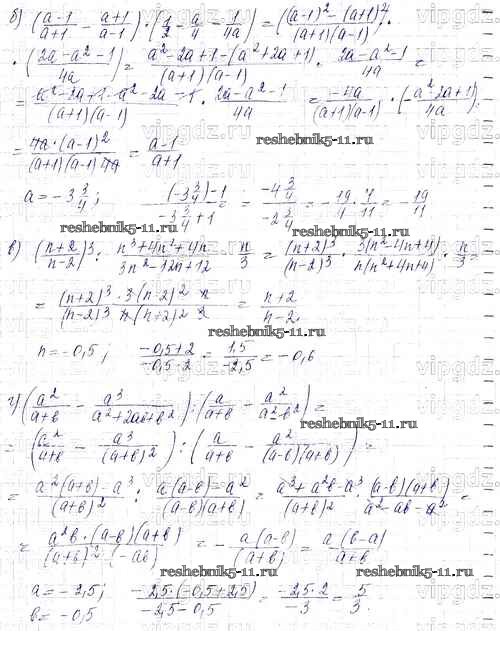 б) ((a-1)/(a+1) - (a+1)/(a-1)) · (1/2 - a/4 - 1/(4a)) = ((a-1)² - (a+1)²)/((a+1)(a-1)) ·
· ((2a-a²-1)/(4a)) = (a²-2a+1-(a²+2a+1))/((a+1)(a-1)) · (2a-a²-1)/(4a) =
= (a²-2a+1-a²-2a-1)/((a+1)(a-1)) · (2a-a²-1)/(4a) = (-4a)/((a+1)(a-1)) · (-(a²-2a+1)/(4a)) =
reshebnik5-11.ru
= (4a·(a-1)²)/((a+1)(a-1)4a) = (a-1)/(a+1)
a = -3 3/4; ((-3 3/4)-1)/(-3 3/4+1) = (-4 3/4)/(-2 3/4) = -19/4 · 4/11 = -19/11
reshebnik5-11.ru reshebnik5-11.ru
в) ((n+2)/(n-2))³ : (n³+4n²+4n)/(3n²-12n+12) · n/3 = (n+2)³/(n-2)³ · 3(n²-4n+4)/(n(n²+4n+4)) · n/3 =
= ((n+2)³·3(n-2)²n)/((n-2)³n(n+2)²3) = (n+2)/(n-2)
reshebnik5-11.ru
n = -0,5; (-0,5+2)/(-0,5-2) = 1,5/(-2,5) = -0,6
г) (a²/(a+b) - a³/(a²+2ab+b²)) : (a/(a+b) - a²/(a²-b²)) =
reshebnik5-11.ru
= (a²/(a+b) - a³/(a+b)²) : (a/(a+b) - a²/((a-b)(a+b))) =
= (a²(a+b)-a³)/(a+b)² : (a(a-b)-a²)/((a-b)(a+b)) = (a³+a²b-a³)/(a+b)² · ((a-b)(a+b))/(a²-ab-a²) =
= (a²b·(a-b)(a+b))/((a+b)²·(-ab)) = -(a(a-b))/(a+b) = (a(b-a))/(a+b)
reshebnik5-11.ru reshebnik5-11.ru
a = -2,5; (-2,5·(-0,5+2,5))/(-2,5-0,5) = (-2,5·2)/(-3) = 5/3.
b = -0,5
reshebnik5-11.ru